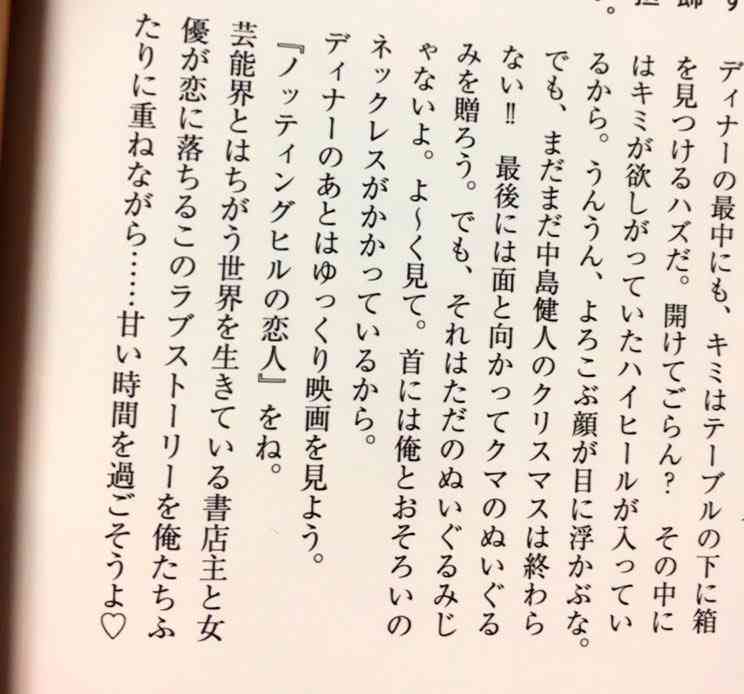 す
飾
。
ディナーの最中にも、キミはテーブルの下に箱
を見つけるハズだ。開けてごらん？　その中に
はキミが欲しがっていたハイヒールが入ってい
るから。うんうん、よろこぶ顔が目に浮かぶな。
でも、まだまだ中島健人のクリスマスは終わら
ない‼　最後には面と向かってクマのぬいぐる
みを贈ろう。でも、それはただのぬいぐるみじ
ゃないよ。よ～く見て。首には俺とおそろいの
ネックレスがかかっているから。
ディナーのあとはゆっくり映画を見よう。
『ノッティングヒルの恋人』をね。
芸能界とはちがう世界を生きている書店主と女
優が恋に落ちるこのラブストーリーを俺たちふ
たりに重ねながら……甘い時間を過ごそうよ♡